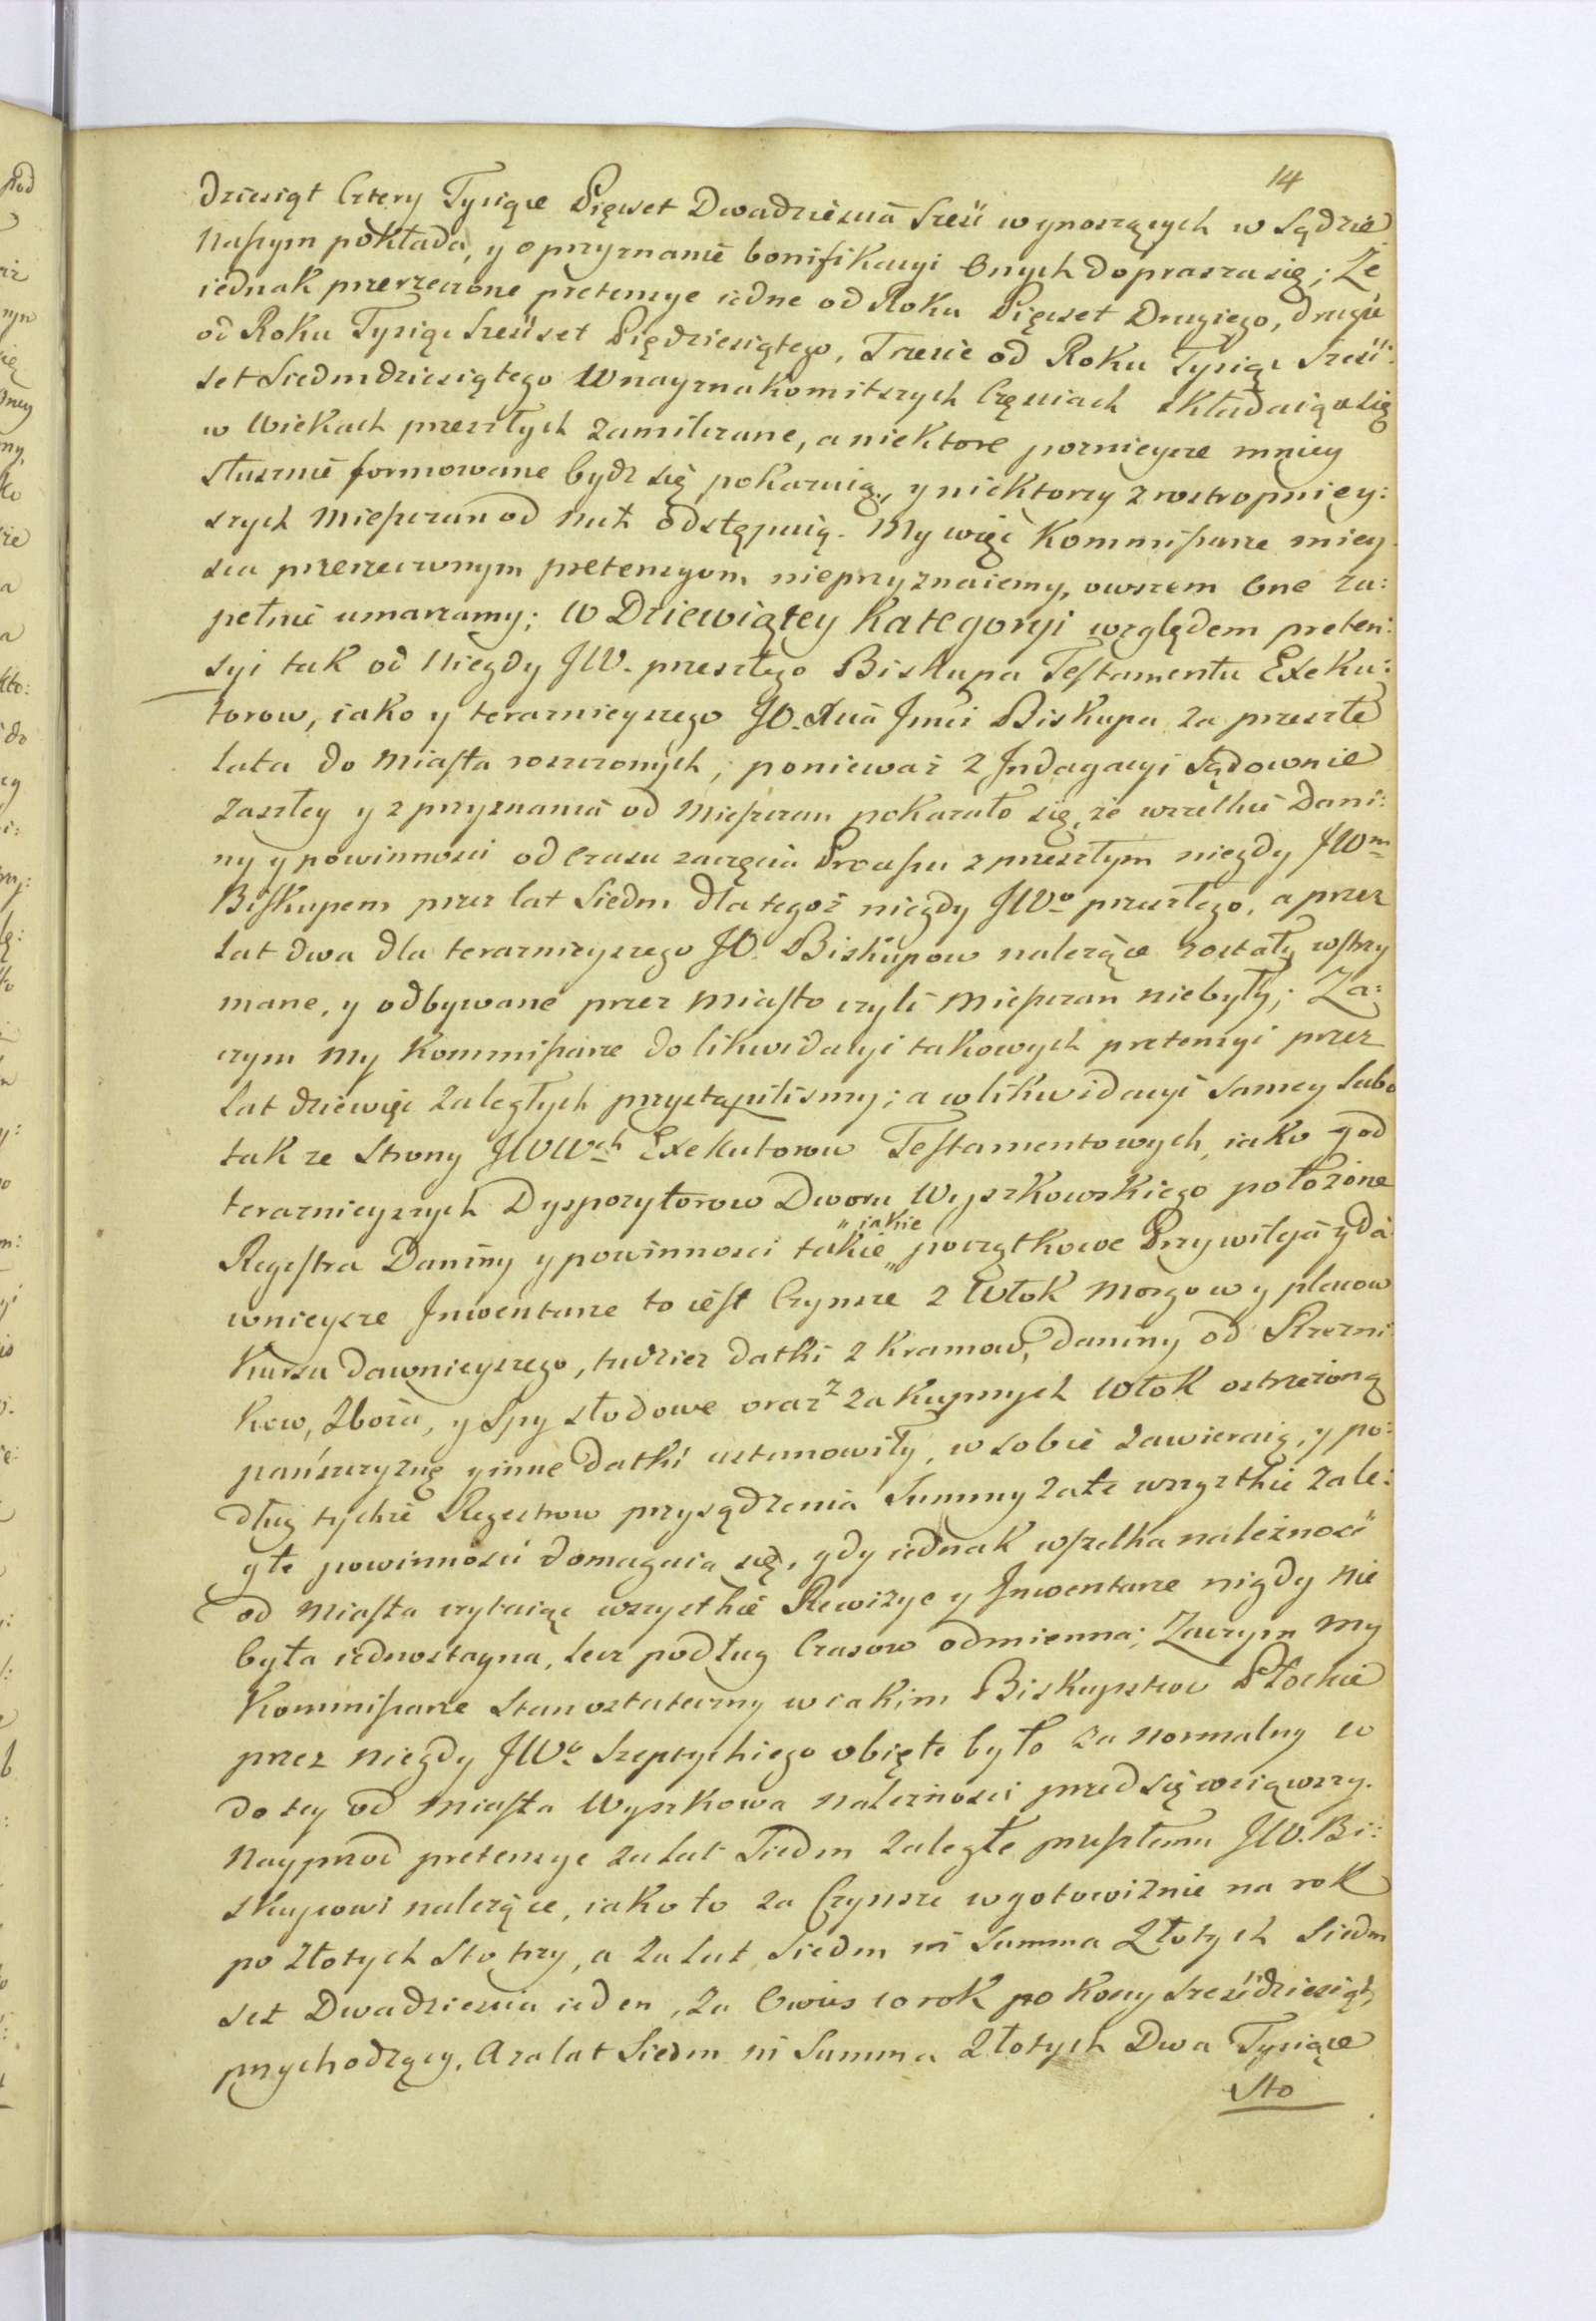 14
dziesiąt Cztery Tysiące Pięćset Dwadziescia Sześć wynoszących w Sądzie
Naszym pokłada, y o przyznanie bonifikacyi Onych doprasza się; Że
iednak przerzeczone pretensye iedne od Roku Pięćset Drugiego, drugie
od Roku Tysiąc Sześćset Pięćdziesiątego, Trzecie od Roku Tysiąc Sześć:
set Siedmdziesiątego W nayznakomitszych Częściach składaiące się
w Wiekach przeszłych zamilczane, a niektore poznieysze mniey
słusznie formowane bydz się pokazuią, y niektorzy z rostropniey:
szych Mieszczan od nich odstępuią. My więc Kommissarze miey
sca przerzeczonym pretensyom nieprzyznaiemy, owszem One zu:
pełnie umarzamy; W Dziewiątey Kategoryi względem preten:
syi tak od Niegdy JW. przeszłego Biskupa Testamentu Exeku:
torow, iako y terazniejszego JO. Xcia Jmci Biskupa za przeszłe
lata do Miasta roszczonych, poniewaz z Indagacyi Sądownie
zaszłey y z przyznania od Mieszczan pokazało się, że wszelkie Dani:
ny y powinnosci od Czasu zaczęcia Processu z przeszłym niegdy JWm
Biskupem przez lat Siedm dla tegoż niegdy JWo przeszłego, a przez
lat dwa dla teraznieyszego JO. Biskupow należące zostały wstrzy
mane, y odbywane przez Miasto czyli Mieszczan niebyły; Za:
czym My Kommissarze do likwidacyi takowych pretensyi przez
lat dziewięć zaległych przystąpilismy; a w likwidacyi samey lubo
tak ze Strony JWWch Exekutorow Testamentowych, iako y od
teraznieyszych Dyspozytorow Dworu Wyszkowskiego położone
Regestra Daniny y powinnosci takie „ iakie „ początkowe Przywileja y da
wnieysze Inwentarze to iest Czynsze z Włok Morgow y placow
Kursu dawnieyszego, tudziez datki z Kramow, Daniny od Rzezni
kow, Zboża, y Spy słodowe oraz z zakupnych Włok ostrzeżoną
pańszczyznę y inne Datki ustanowiły, w sobie zawieraią, y po:
dług tychże Regestrow przysądzenia Summy za te wszystkie zale:
głe powinności domagaia się, gdy iednak wszelka należność
od Miasta czytaiąc wszystkie Rewizye y Inwentarze nigdy nie
była iednostayna, lecz podług Czasow odmienna; Zaczym My
Kommissarze Stan ostateczny w iakim Biskupstwo Płockie
przez niegdy JWo Szeptyckiego obięte było za normalny w
do tey od Miasta Wyszkowa należnosci przedsięwziąwszy.
Nayprzod pretensye za lat Siedm zaległe przeszłemu JW. Bi:
skupowi należące, iako to za Czynsze w gotowiźnie na rok
po Złotych Sto trzy, a za lat Siedm in Summa Złotych Siedm
set Dwadziescia ieden, za Owies co rok po Kosy Sześćdziesiąt
przychodzący, A za lat Siedm in Summa Złotych Dwa Tysiące
Sto